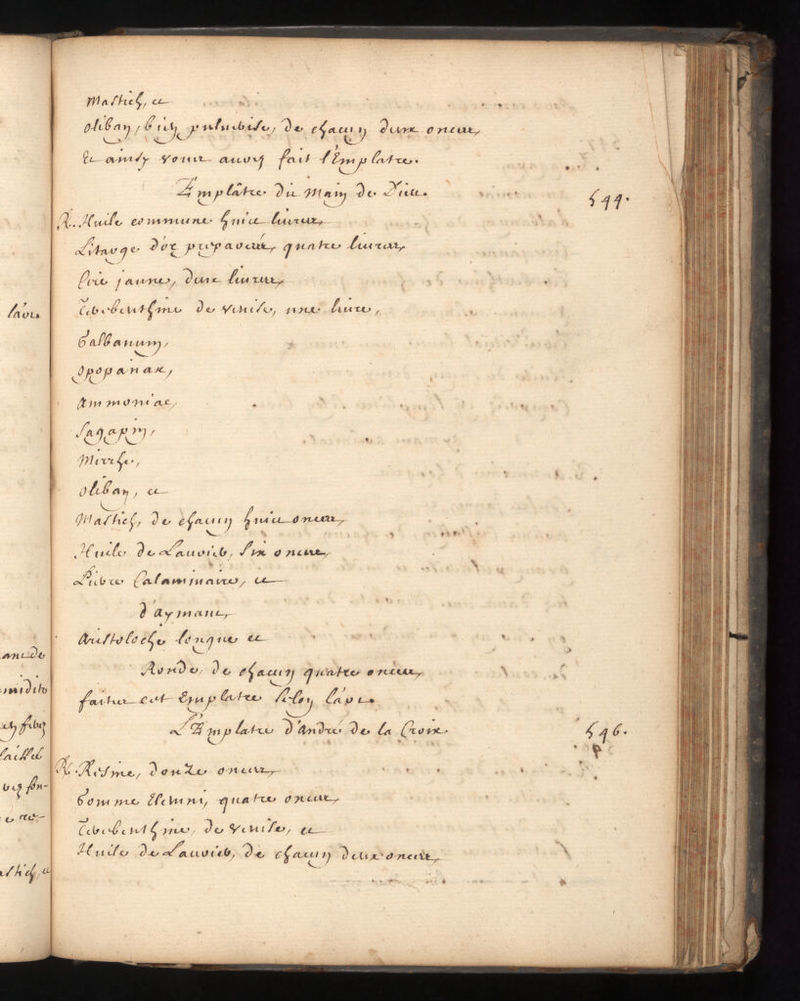 Mastich, et
Oliban, bien pulverisé, de chacun deux onces,
Et ainsy vous aurez fait l'Emplatre.
Emplâtre du Main de Dieu. 544.
R. Huile commune huict livres,
Litarge d'or preparée, quatre livres,
Cire jaune, deux livres,
Therebenthine de Venise, une livre,
Galbanum,
Opopanax,
Ammoniac,
Sagapin,
Mirrhe,
Oliban, et
Mastich, de chacun huict onces,
Huile de Laurier, six onces,
Pierre Calaminaire, et
d'aymant,
Aristoloche longue et
Ronde, de chacun quatre onces,
faites cet Emplatre selon l'art.
L'Emplatre d'André de la Croix. 546.
R. Résine, douze onces,
Gomme Elemni, quatre onces,
Therebenthine, de Venise, et
Huile de Laurier, de chacun deux onces,
l'art.